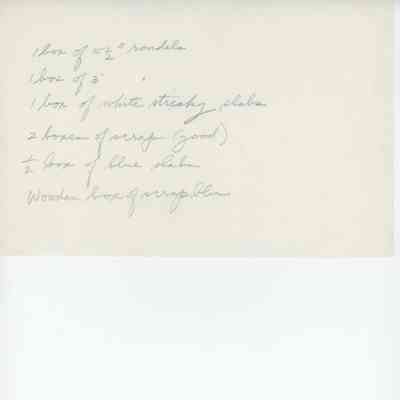 1 box of 10½" rondels
1 box of 3"
1 box of white streaky slabs
2 boxes of scrap (good)
½ box of blue slabs
Wooden box of scrap blue